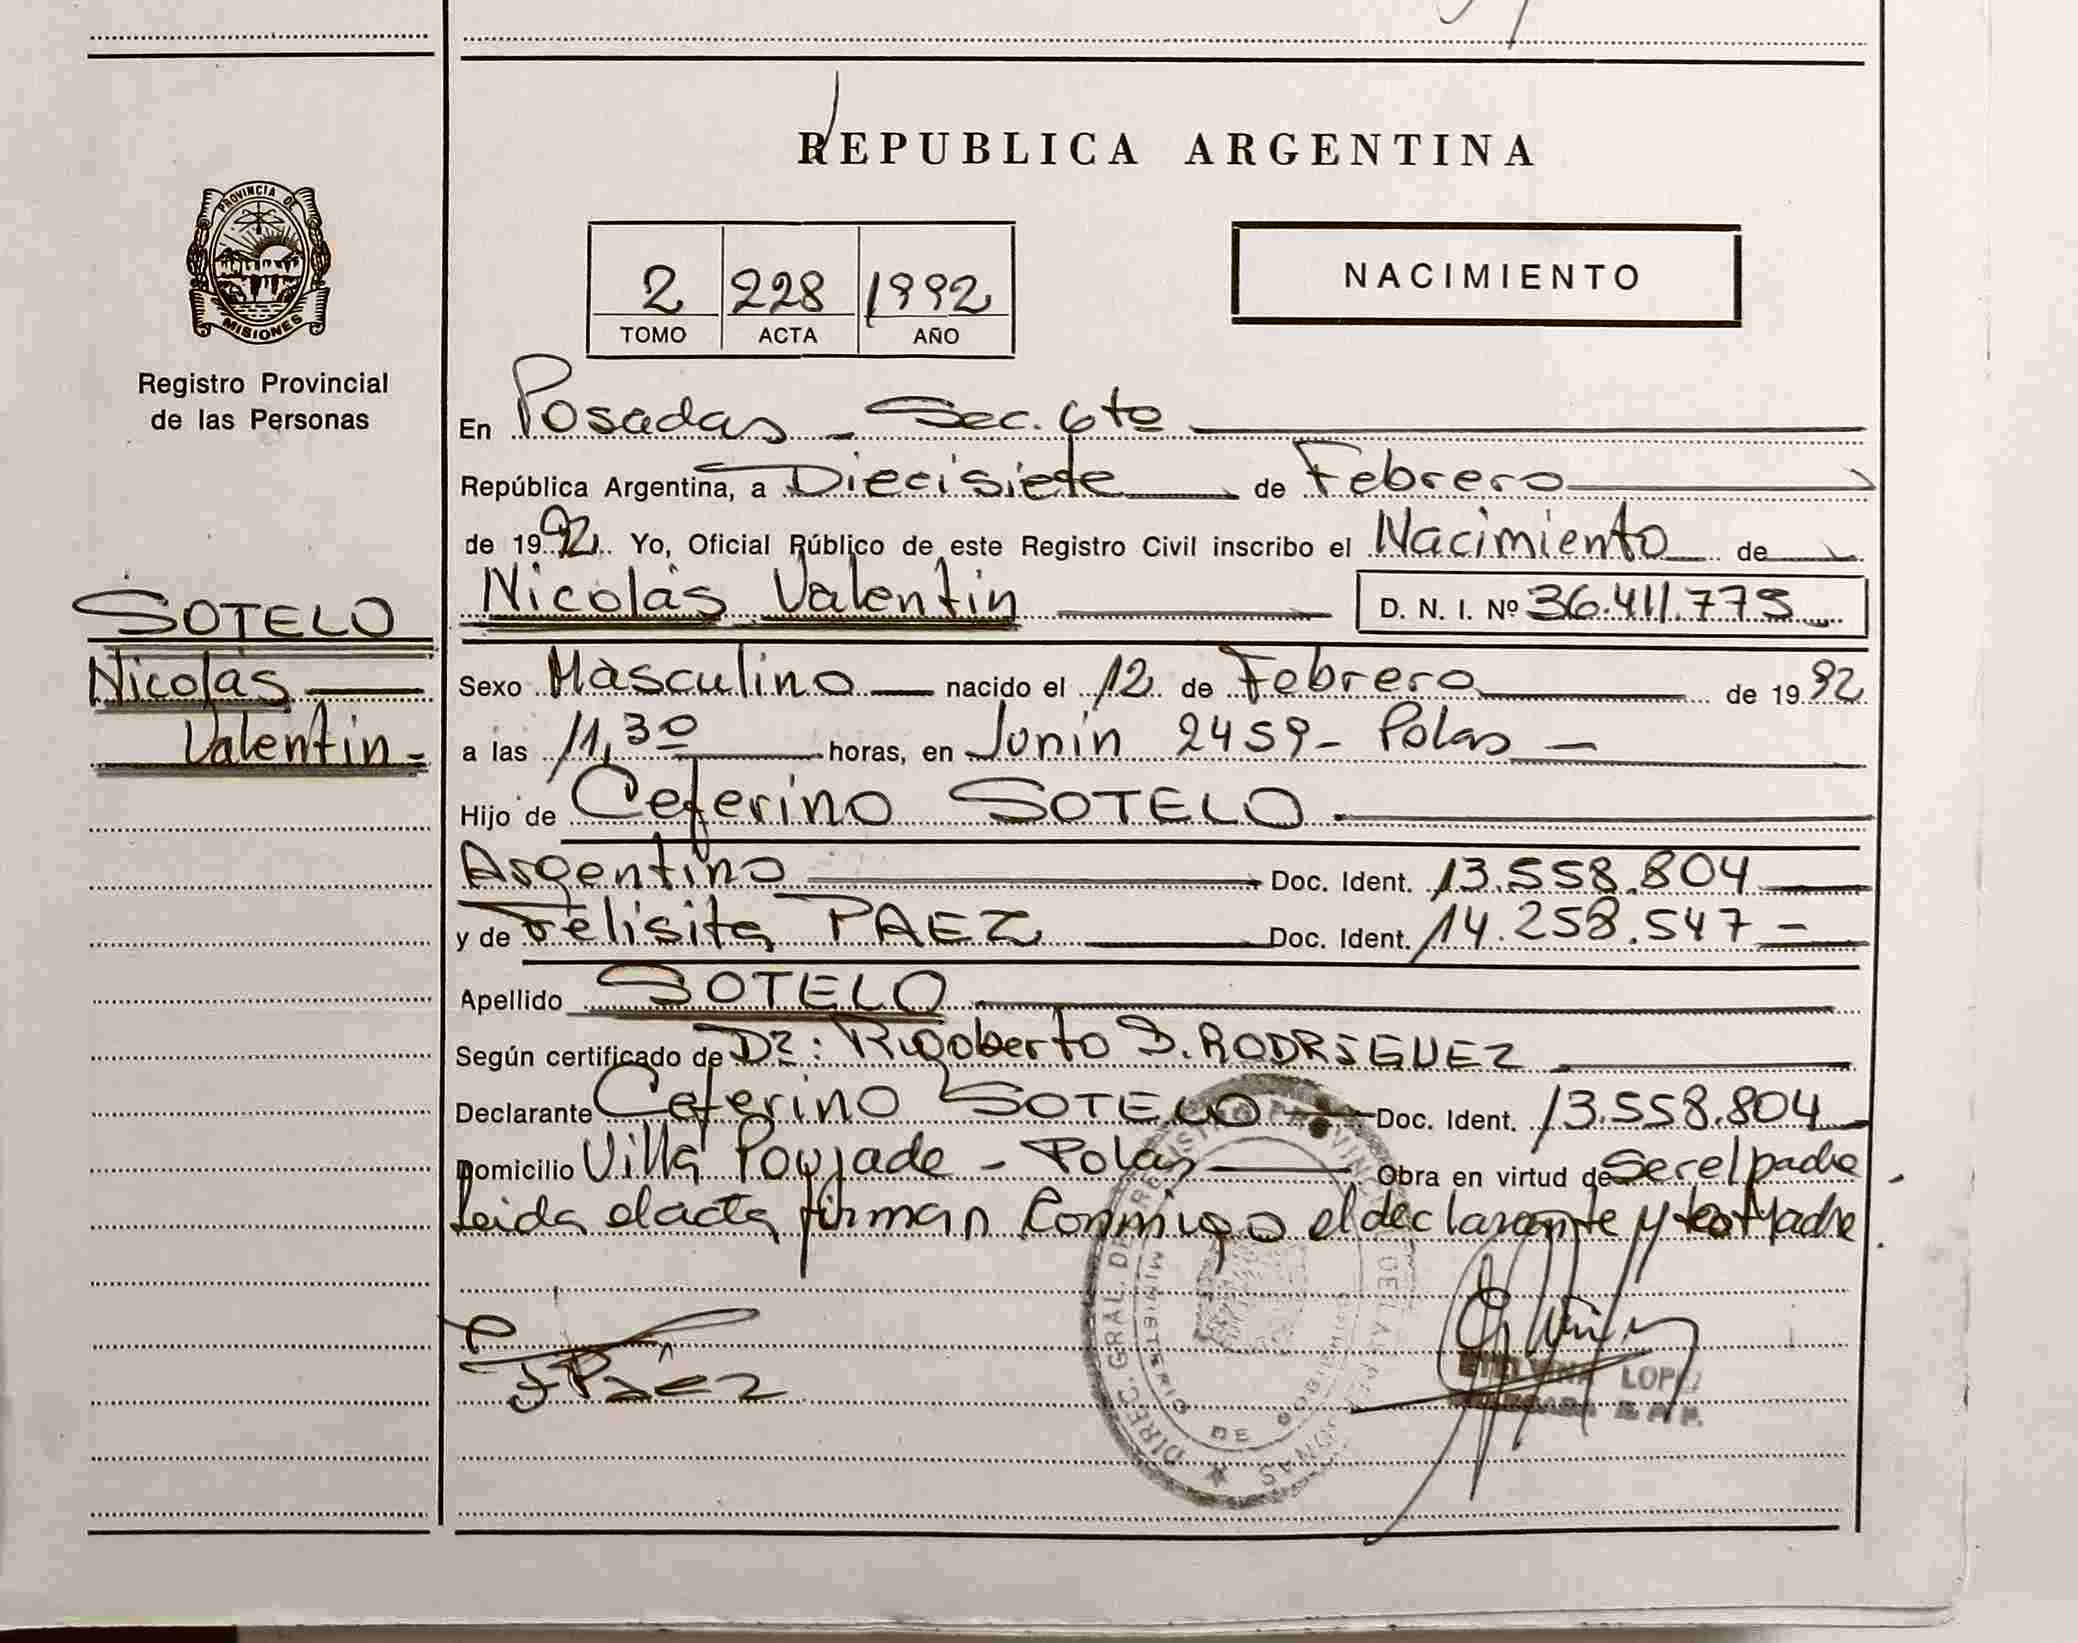 REPUBLICA ARGENTINA
PROVINCIA DE
MISIONES
Registro Provincial
de las Personas
2 228 1992
TOMO ACTA AÑO
NACIMIENTO
En Posadas - Sec. 6to
República Argentina, a Diecisiete de Febrero
de 1992. Yo, Oficial Público de este Registro Civil inscribo el Nacimiento de
Nicolás Valentin D. N. I. Nº 36.411.775
SOTELO
Nicolás
Valentin
Sexo Masculino nacido el 12 de Febrero de 1992
a las 11,30 horas, en Junin 2459 - Pdas -
Hijo de Ceferino SOTELO
Argentino Doc. Ident. 13.558.804
y de Felisita PAEZ Doc. Ident. 14.258.547 -
Apellido SOTELO
Según certificado de Dr: Rigoberto D. RODRIGUEZ
Declarante Ceferino SOTELO Doc. Ident. 13.558.804
Domicilio Villa Poujade - Pdas Obra en virtud de Ser el padre
Leida el acta firman Conmigo el declarante y Madre
F Páez
LOPEZ
DIREC. GRAL. DEL REGISTRO PROVINCIAL DE LAS PERSONAS
MINISTERIO DE GOBIERNO